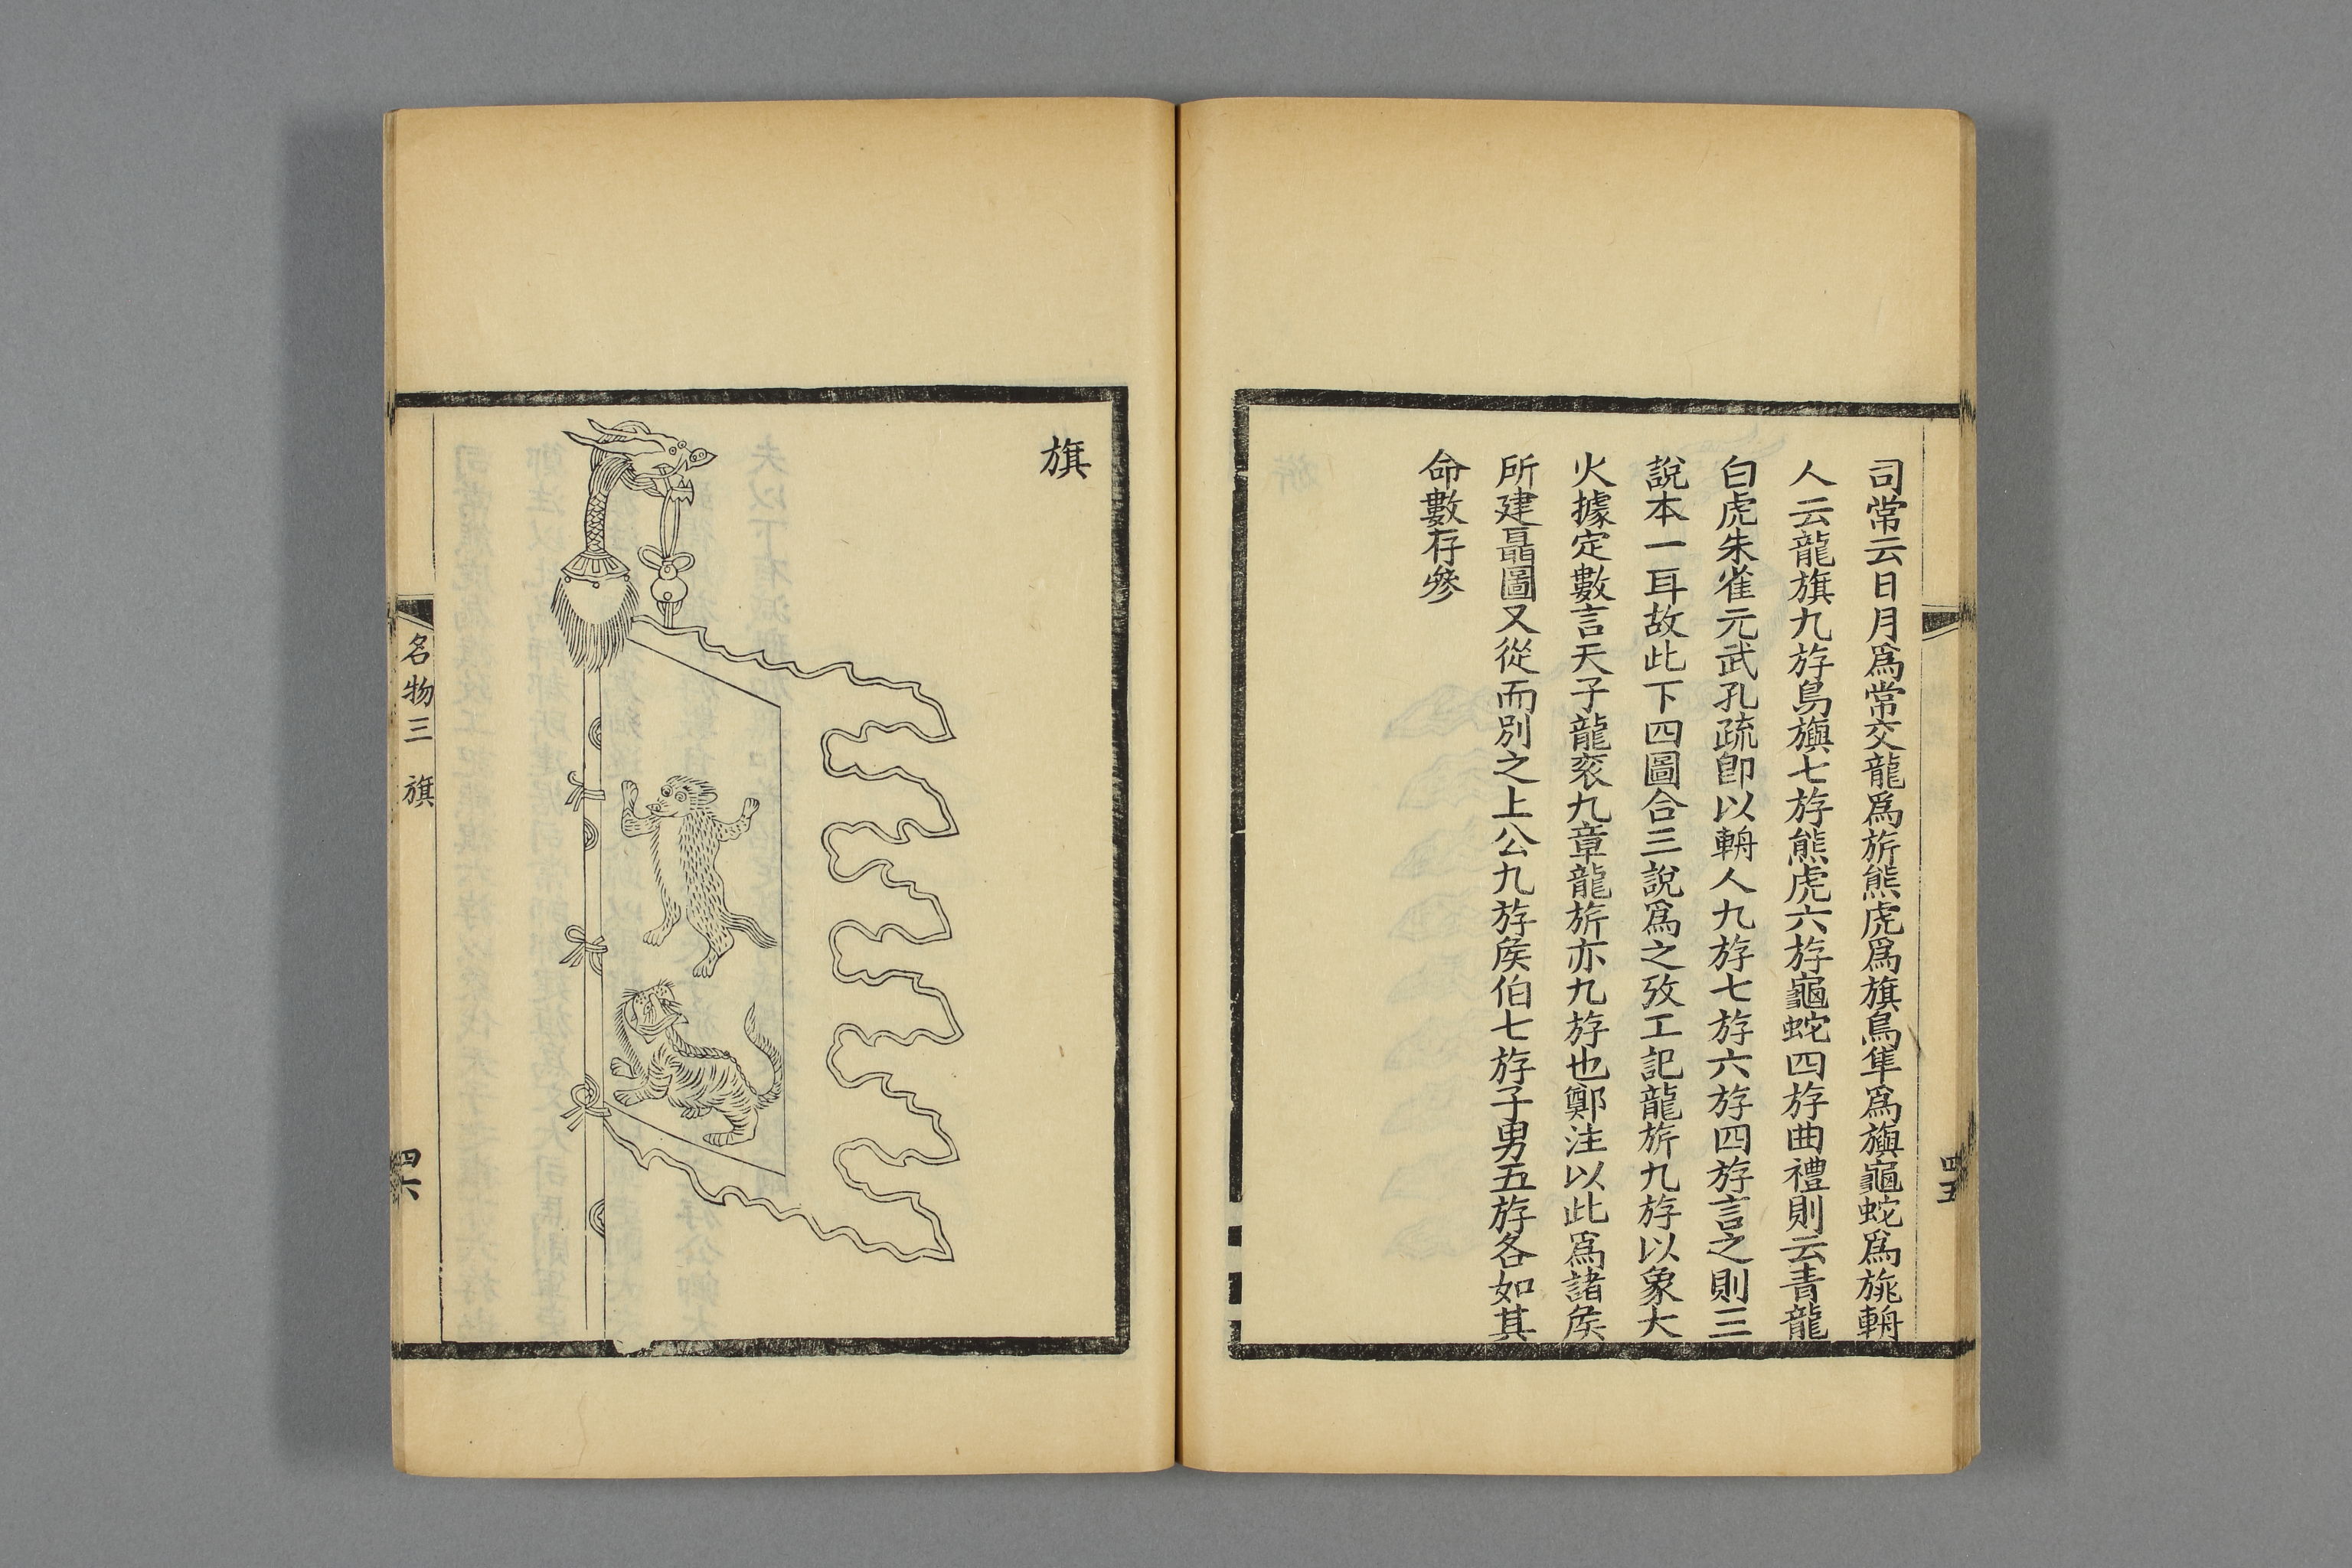 司常云日月爲常交龍爲旂熊虎爲旗鳥隼爲旟龜蛇爲旐輈
人云龍旗九斿鳥旟七斿熊虎六斿龜蛇四斿曲禮則云青龍
白虎朱雀元武孔疏卽以輈人九斿七斿六斿四斿言之則三
說本一耳故此下四圖合三說爲之攷工記龍旂九斿以象大
火據定數言天子龍衮九章龍旂亦九斿也鄭注以此爲諸矦
所建聶圖又從而別之上公九斿矦伯七斿子男五斿各如其
命數存參
四五
旗
名物三 旗
四六